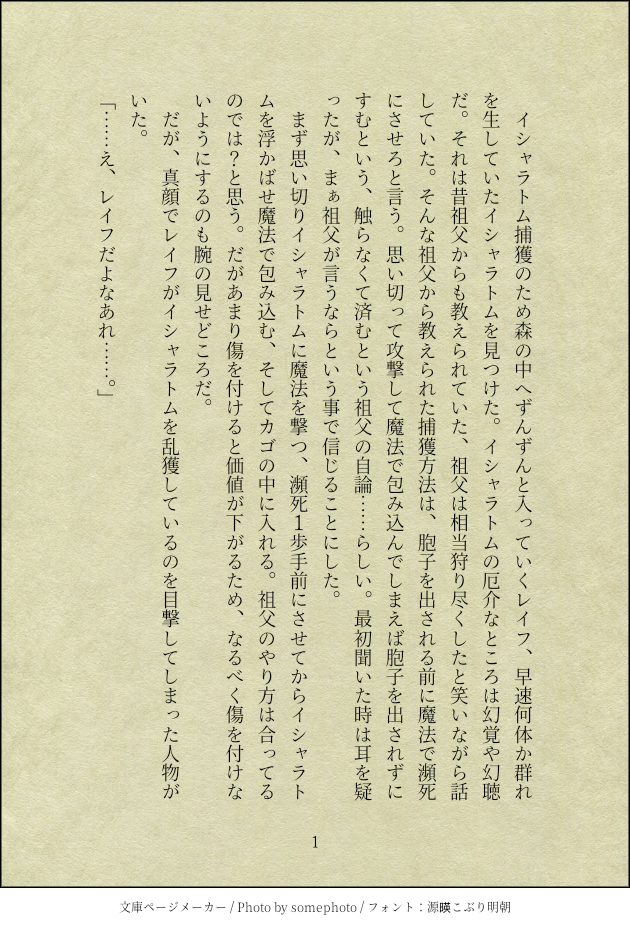 イシャラトム捕獲のため森の中へずんずんと入っていくレイフ、早速何体か群れ
を生していたイシャラトムを見つけた。イシャラトムの厄介なところは幻覚や幻聴
だ。それは昔祖父からも教えられていた、祖父は相当狩り尽くしたと笑いながら話
していた。そんな祖父から教えられた捕獲方法は、胞子を出される前に魔法で瀕死
にさせろと言う。思い切って攻撃して魔法で包み込んでしまえば胞子を出されずに
すむという、触らなくて済むという祖父の自論……らしい。最初聞いた時は耳を疑
ったが、まぁ祖父が言うならという事で信じることにした。
　まず思い切りイシャラトムに魔法を撃つ、瀕死１歩手前にさせてからイシャラト
ムを浮かばせ魔法で包み込む、そしてカゴの中に入れる。祖父のやり方は合ってる
のでは？と思う。だがあまり傷を付けると価値が下がるため、なるべく傷を付けな
いようにするのも腕の見せどころだ。
　だが、真顔でレイフがイシャラトムを乱獲しているのを目撃してしまった人物が
いた。
「……え、レイフだよなあれ……。」
1
文庫ページメーカー / Photo by somephoto / フォント：源暎こぶり明朝